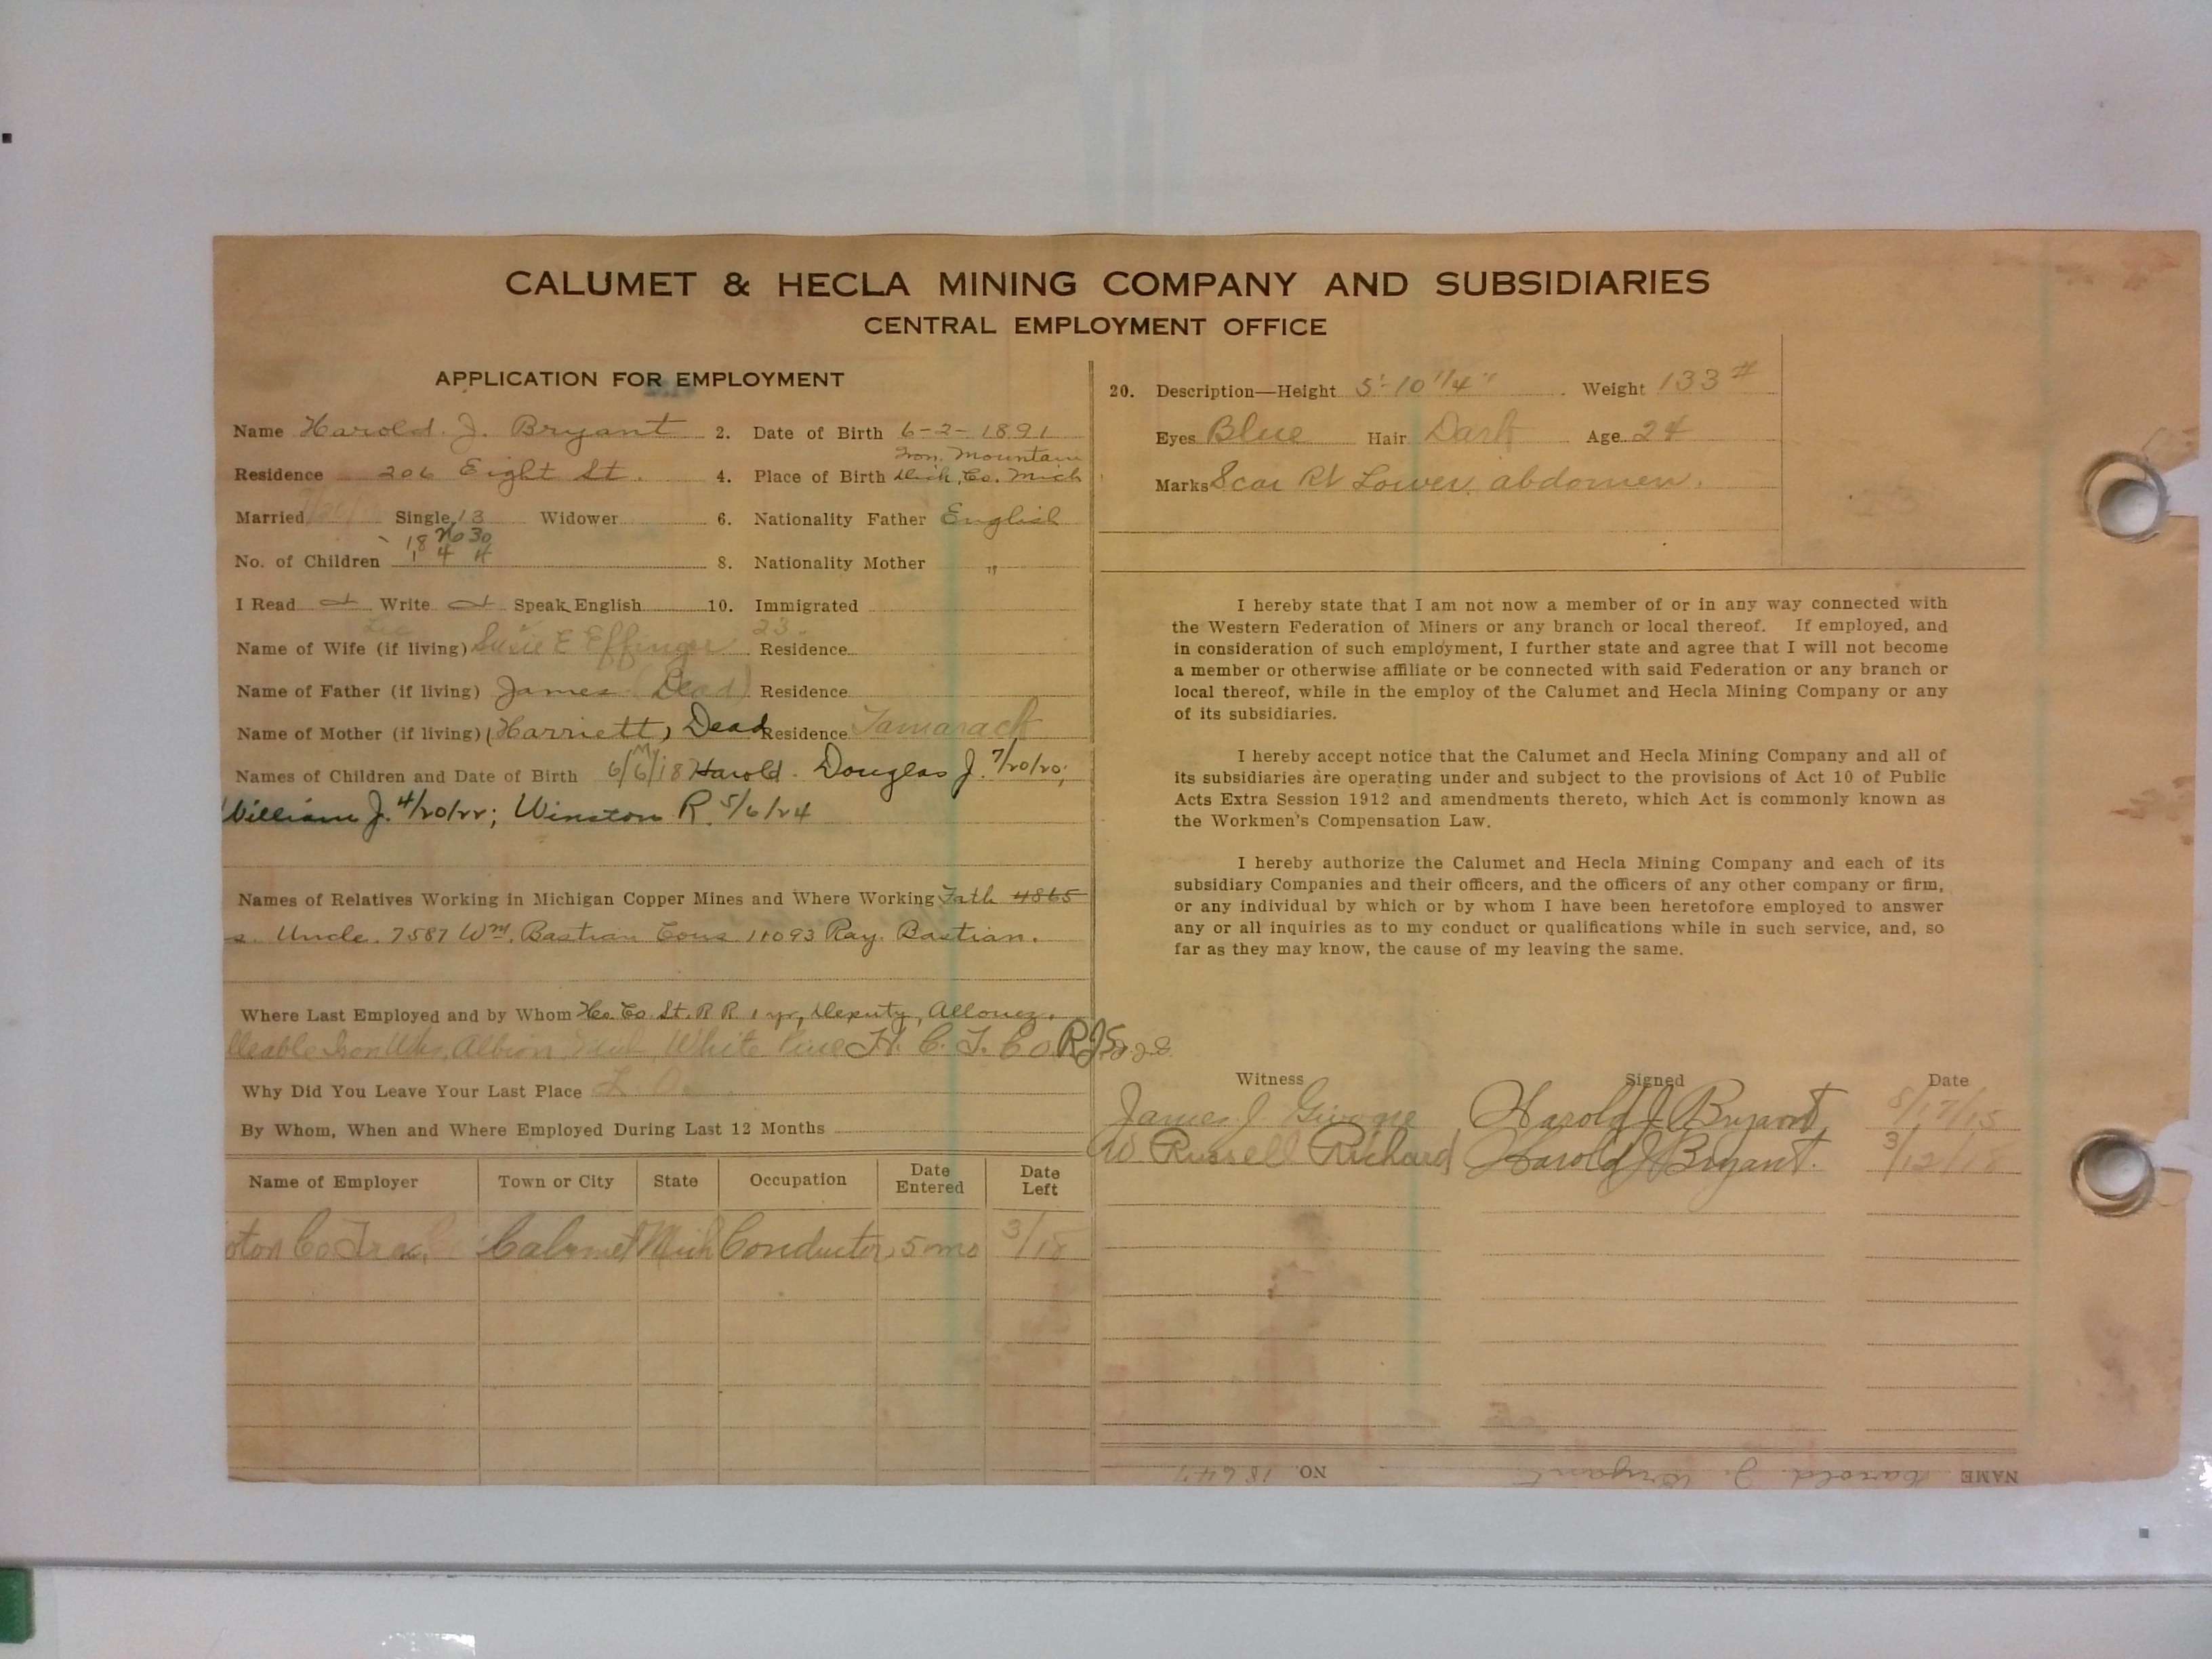 CALUMET & HECLA MINING COMPANY AND SUBSIDIARIES
CENTRAL EMPLOYMENT OFFICE
APPLICATION FOR EMPLOYMENT
Name Harold. J. Bryant 2. Date of Birth 6-2-1891
Iron Mountain
Residence 206 Eight St. 4. Place of Birth Dick, Co. Mich
Married Single 13 Widower 6. Nationality Father English
18 20 30
No. of Children 1 4 4 8. Nationality Mother "
I Read Write Speak English 10. Immigrated
23
Name of Wife (if living) Susie E Effinger Residence
Name of Father (if living) James (Dead) Residence
Name of Mother (if living) (Harriett) Dead Residence Tamarack
Names of Children and Date of Birth 6/6/18 Harold. Douglas J. 7/20/20;
William J. 4/20/22; Winston R. 5/6/24
Names of Relatives Working in Michigan Copper Mines and Where Working Fath 4865
s. Uncle. 7587 Wm. Bastian Cous 11093 Ray. Bastian.
Where Last Employed and by Whom Ho. Co. St. R R. 1 yr, Deputy, Allouez.
lleable Iron Wks, Albion, Mich, White Pine H. C. T. Co. RJS
Why Did You Leave Your Last Place
By Whom, When and Where Employed During Last 12 Months
Name of Employer Town or City State Occupation Date Entered Date Left
oton Co Trac. Calumet Mich Conductor 5 mo 3/18
20. Description—Height 5'-10 1/4" Weight 133 #
Eyes Blue Hair Dark Age 24
Marks Scar Rt Lower abdomen.
I hereby state that I am not now a member of or in any way connected with
the Western Federation of Miners or any branch or local thereof. If employed, and
in consideration of such employment, I further state and agree that I will not become
a member or otherwise affiliate or be connected with said Federation or any branch or
local thereof, while in the employ of the Calumet and Hecla Mining Company or any
of its subsidiaries.
I hereby accept notice that the Calumet and Hecla Mining Company and all of
its subsidiaries are operating under and subject to the provisions of Act 10 of Public
Acts Extra Session 1912 and amendments thereto, which Act is commonly known as
the Workmen's Compensation Law.
I hereby authorize the Calumet and Hecla Mining Company and each of its
subsidiary Companies and their officers, and the officers of any other company or firm,
or any individual by which or by whom I have been heretofore employed to answer
any or all inquiries as to my conduct or qualifications while in such service, and, so
far as they may know, the cause of my leaving the same.
Witness Signed Date
James J. Harold J Bryant 8/17/15
W Russell Richard Harold J Bryant. 3/12/18
NAME Harold. J. Bryant NO. 18647